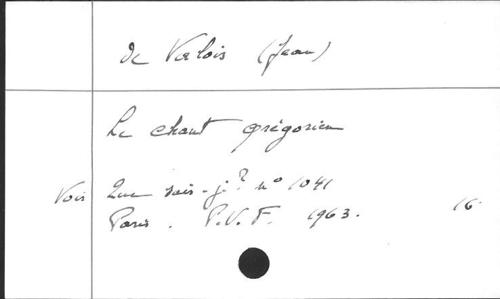 de Valois (Jean)
Le chant grégorien
Voir Que sais-je? n° 1041
Paris. P.U.F. 1963. 16